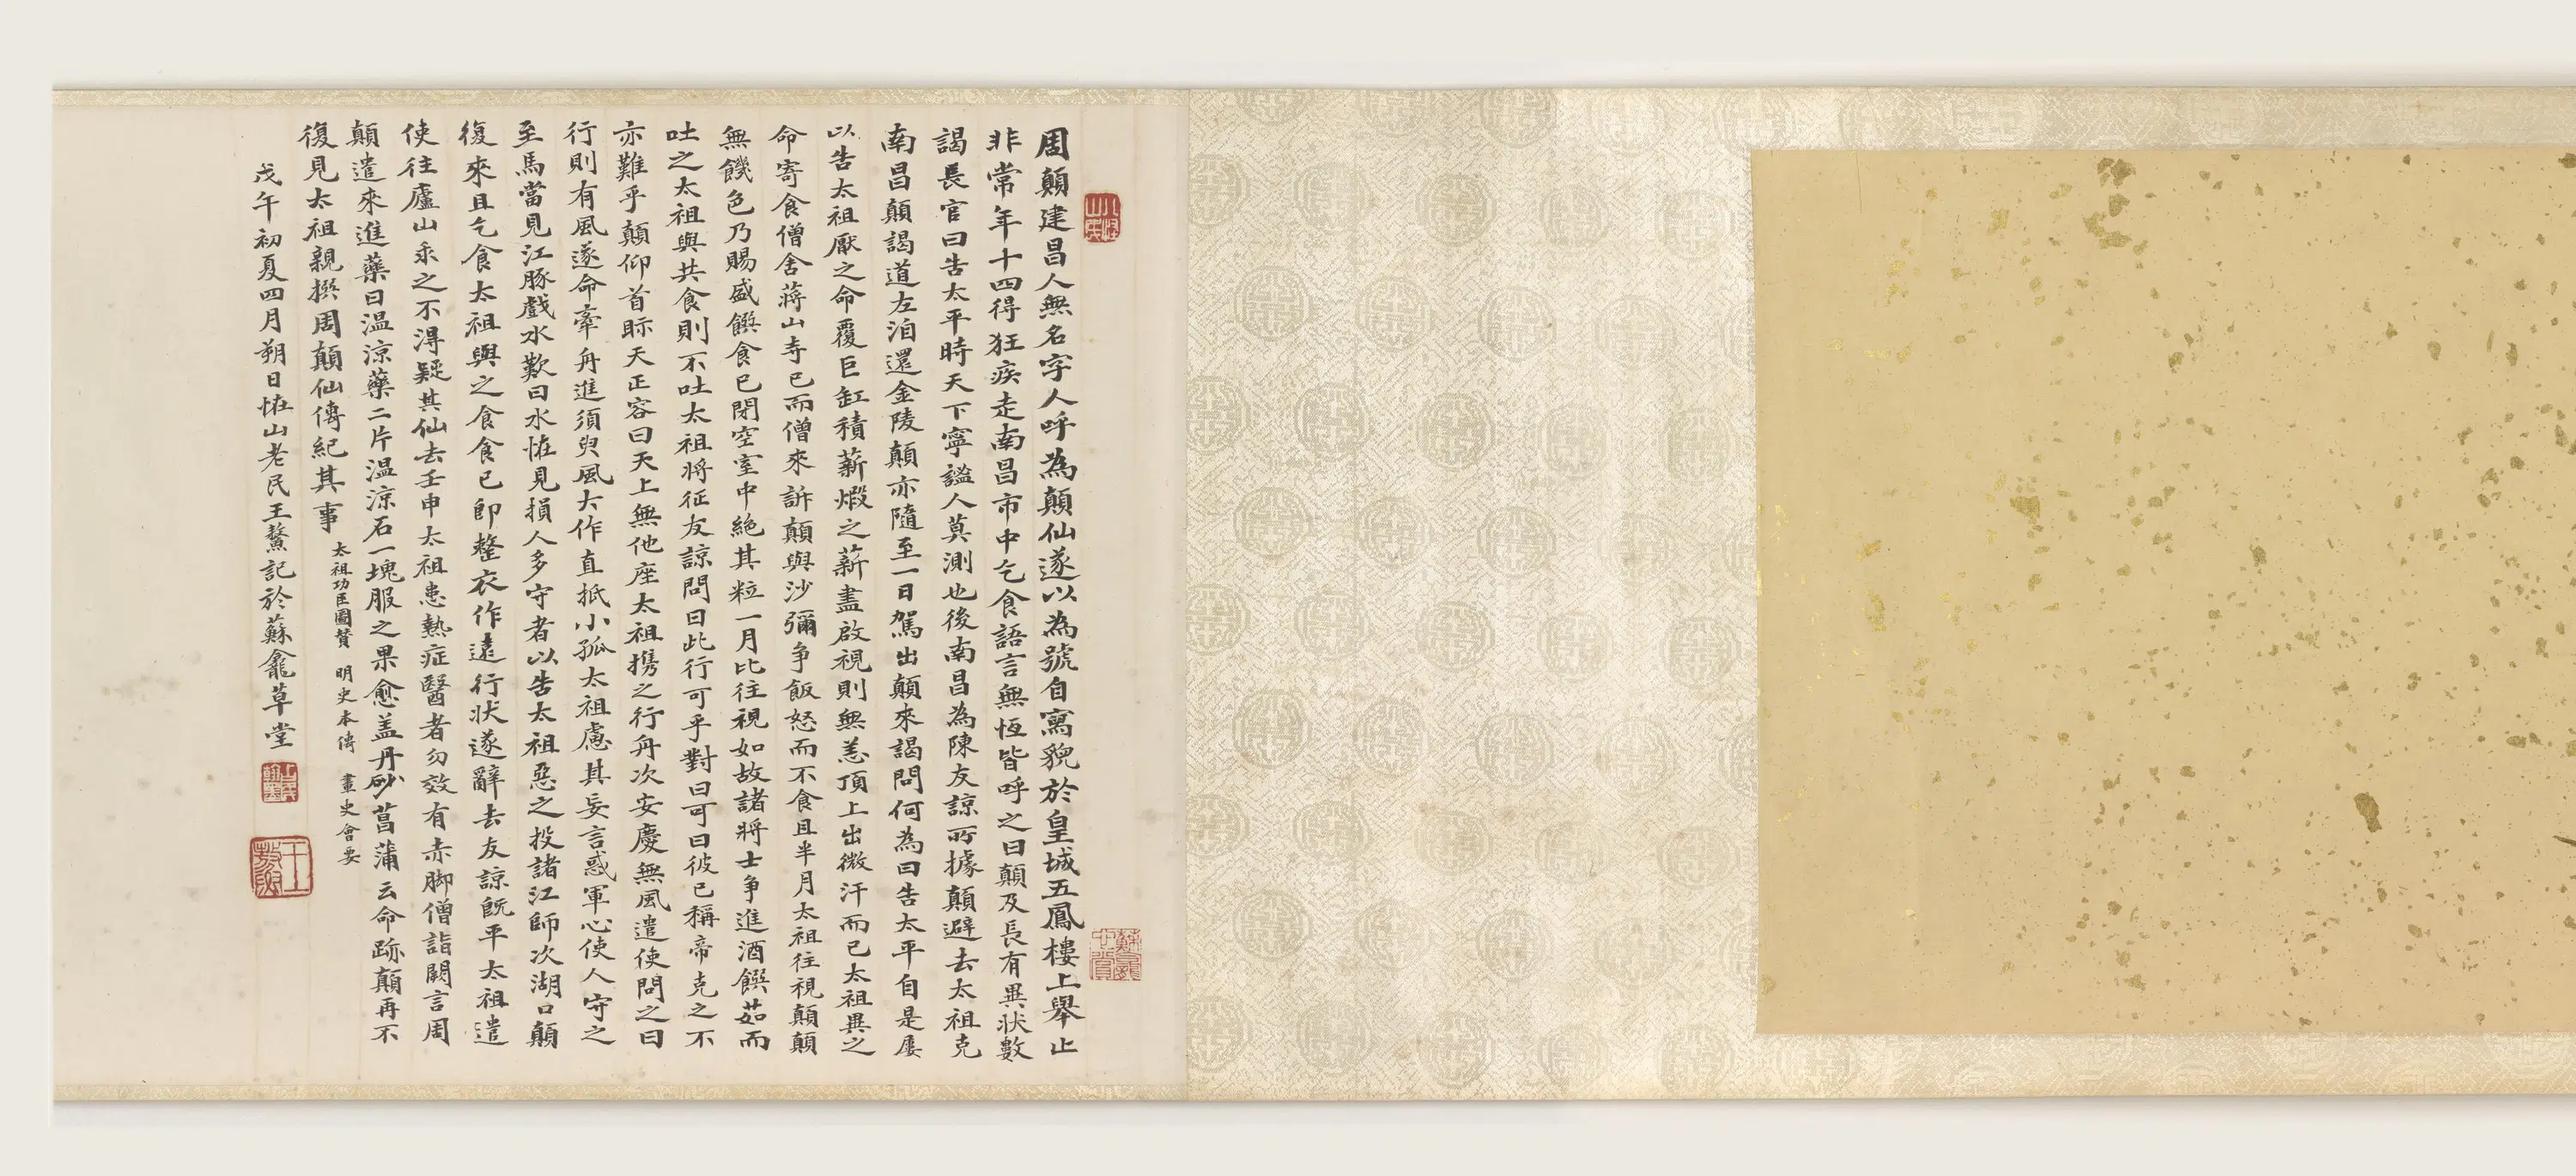 周顛建昌人無名字人呼為顛仙遂以為號自寫貌於皇城五鳳樓上舉止
非常年十四得狂疾走南昌市中乞食語言無恆皆呼之曰顛及長有異狀數
謁長官曰告太平時天下寧謐人莫測也後南昌為陳友諒所據顛避去太祖克
南昌顛謁道左洎還金陵顛亦隨至一日駕出顛來謁問何為曰告太平自是屢
以告太祖厭之命覆巨缸積薪煅之薪盡啟視則無恙頂上出微汗而已太祖異之
命寄食僧舍蔣山寺已而僧來訴顛與沙彌爭飯怒而不食且半月太祖往視顛顛
無饑色乃賜盛饌食已閉空室中絕其粒一月比往視如故諸將士爭進酒饌茹而
吐之太祖與共食則不吐太祖將征友諒問曰此行可乎對曰可曰彼已稱帝克之不
亦難乎顛仰首眎天正容曰天上無他座太祖攜之行舟次安慶無風遣使問之曰
行則有風遂命牽舟進須臾風大作直抵小孤太祖慮其妄言惑軍心使人守之
至馬當見江豚戲水歎曰水恠見損人多守者以告太祖惡之投諸江師次湖口顛
復來且乞食太祖與之食食已即整衣作遠行狀遂辭去友諒既平太祖遣
使往廬山求之不得疑其仙去壬申太祖患熱症醫者勿效有赤脚僧詣闕言周
顛遣來進藥曰温涼藥二片温涼石一塊服之果愈盖丹砂菖蒲云命跡顛再不
復見太祖親撰周顛仙傳紀其事 太祖功臣圖贊 明史本傳 畫史會要
戊午初夏四月朔日恠山老民王鰲記於蘇龕草堂